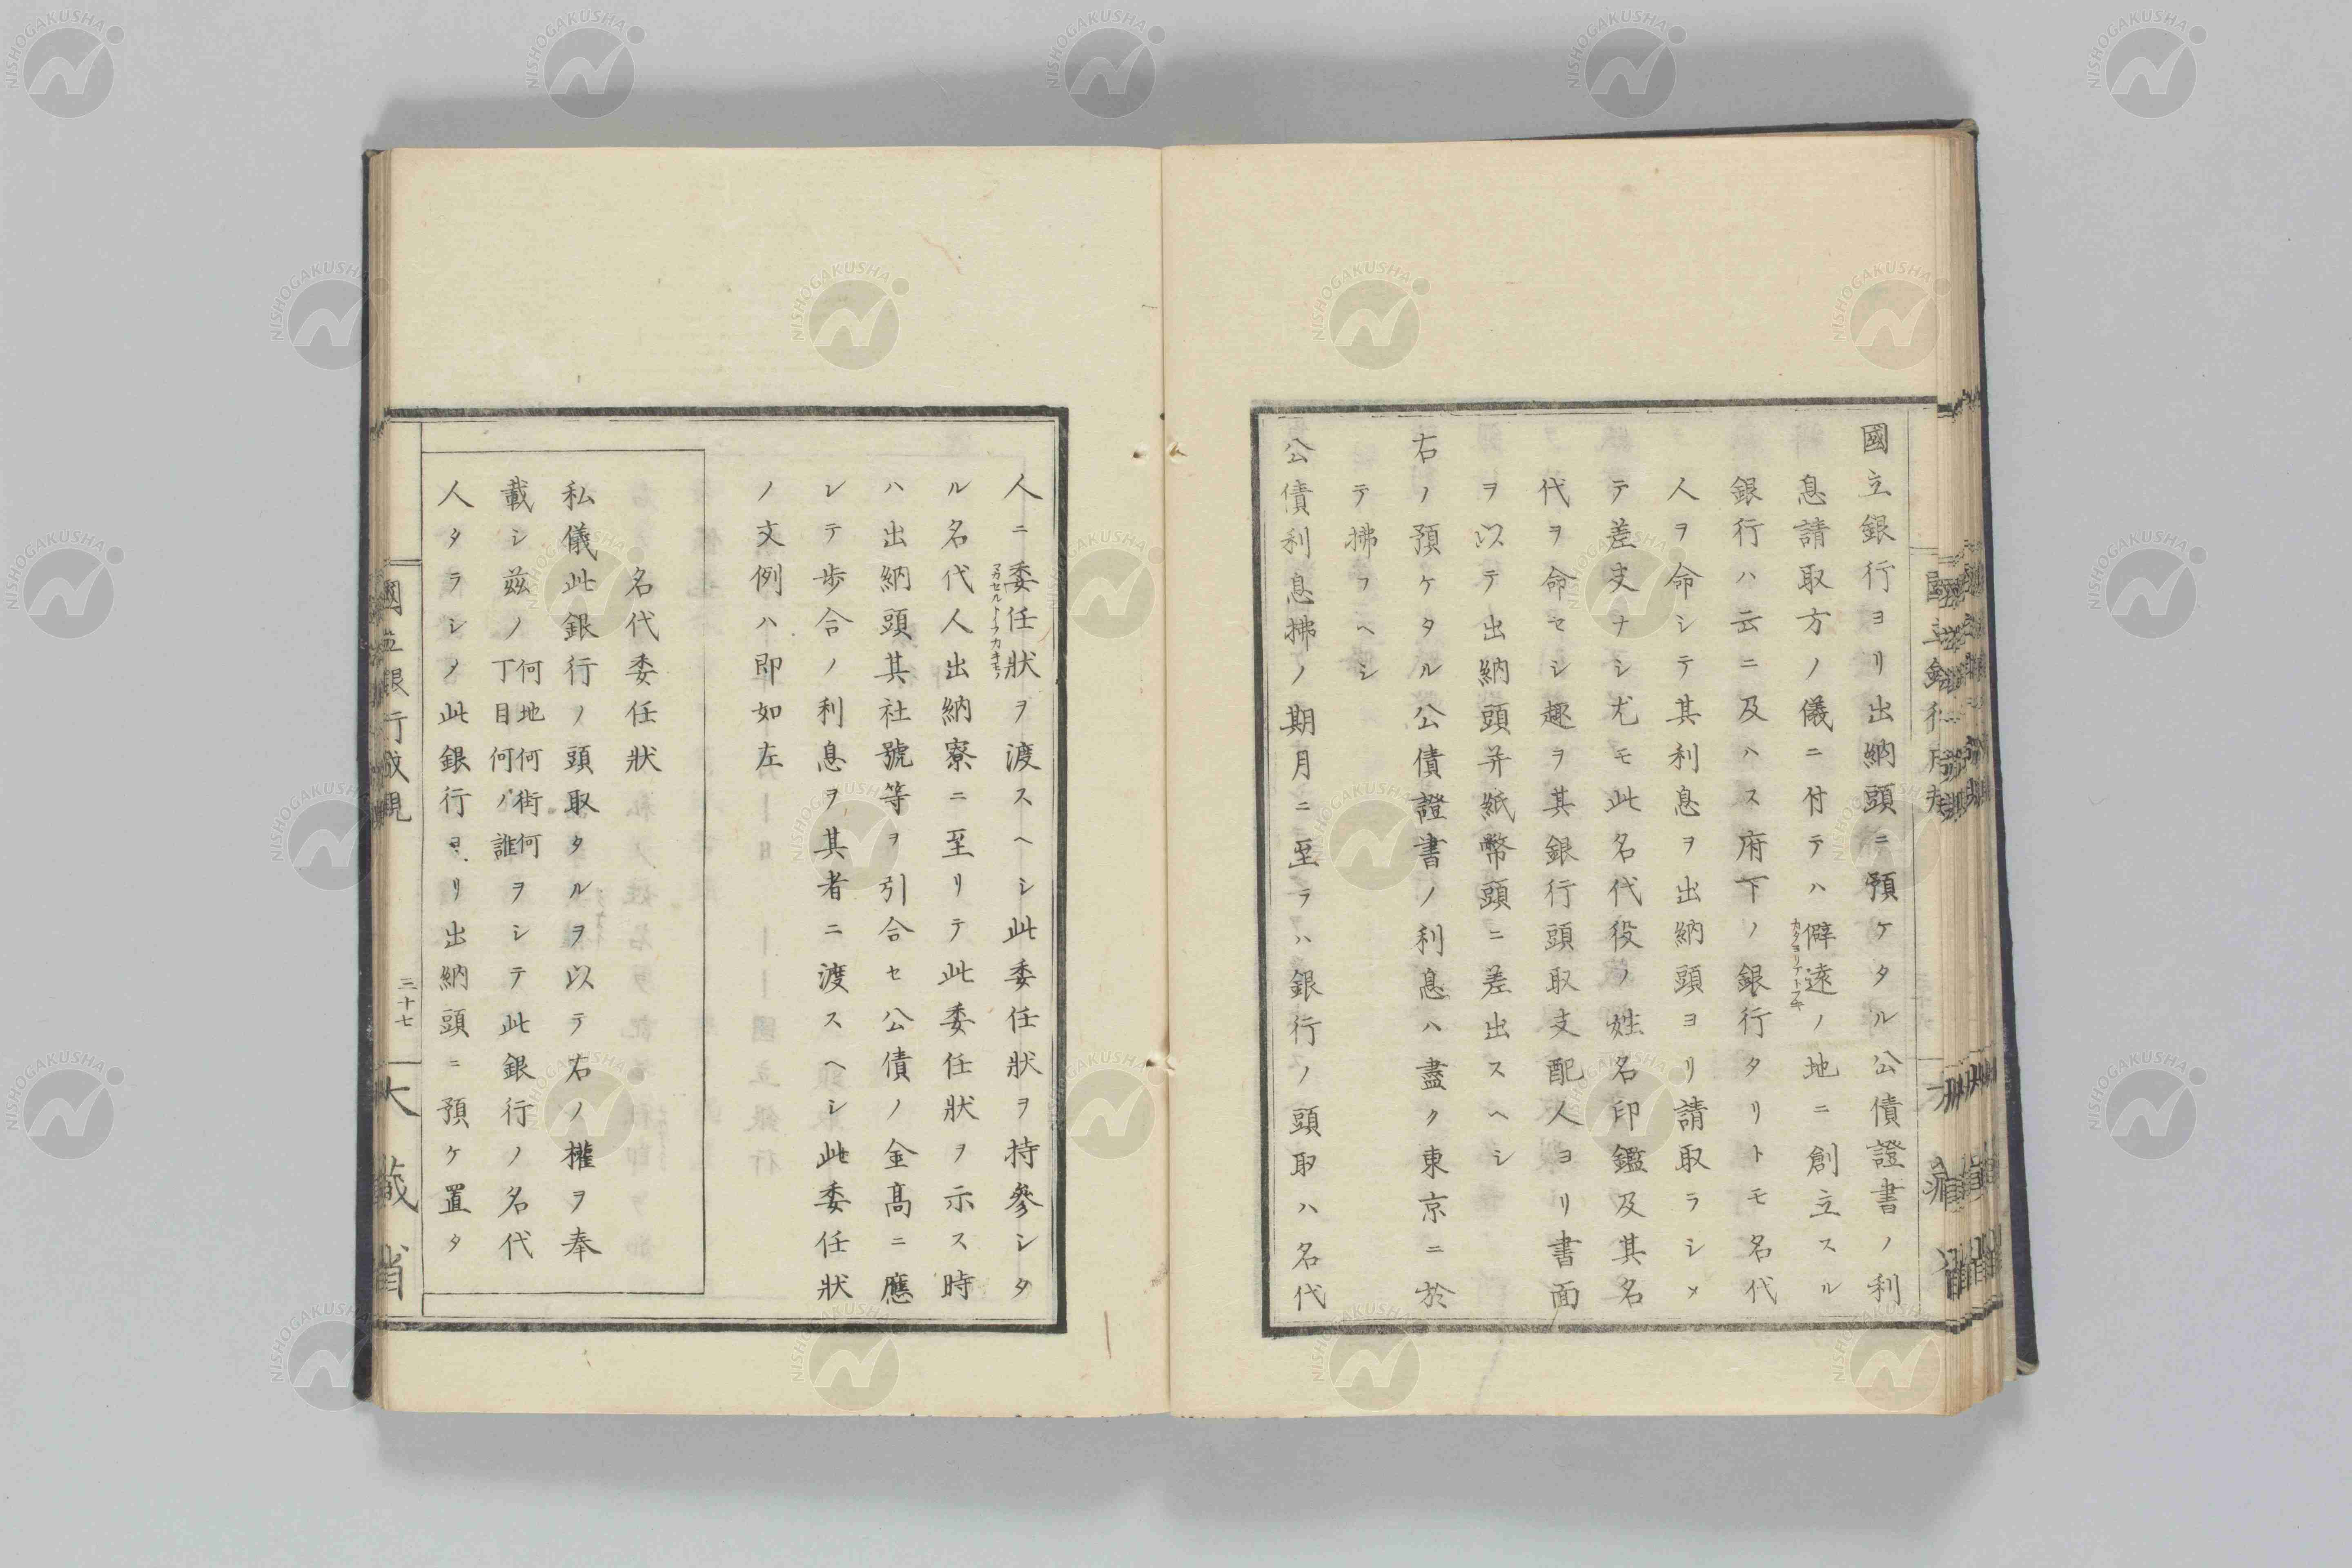 國立銀行ヨリ出納頭ニ預ケタル公債證書ノ利
息請取方ノ儀ニ付テハ僻遠ノ地ニ創立スル
カタヨリアトフキ
銀行ハ云ニ及ハス府下ノ銀行タリトモ名代
人ヲ命シテ其利息ヲ出納頭ヨリ請取ラシメ
テ差支ナシ尤モ此名代役ノ姓名印鑑及其名
代ヲ命セシ趣ヲ其銀行頭取支配人ヨリ書面
ヲ以テ出納頭并紙幣頭ニ差出スヘシ
右ノ預ケタル公債證書ノ利息ハ盡ク東京ニ於
テ拂フヘシ
公債利息拂ノ期月ニ至ラハ銀行ノ頭取ハ名代
人ニ委任狀ヲ渡スヘシ此委任狀ヲ持參シタ
マカセルトイフカキモノ
ル名代人出納寮ニ至リテ此委任狀ヲ示ス時
ハ出納頭其社號等ヲ引合セ公債ノ金高ニ應
シテ歩合ノ利息ヲ其者ニ渡スヘシ此委任狀
ノ文例ハ即如左
名代委任狀
私儀此銀行ノ頭取タルヲ以テ右ノ權ヲ奉
載シ茲ノ何地何街何丁目何ノ誰ヲシテ此銀行ノ名代
人タラシメ此銀行ヨリ出納頭ニ預ケ置タ
國立銀行成規
三十七
大藏省
NISHOGAKUSHA